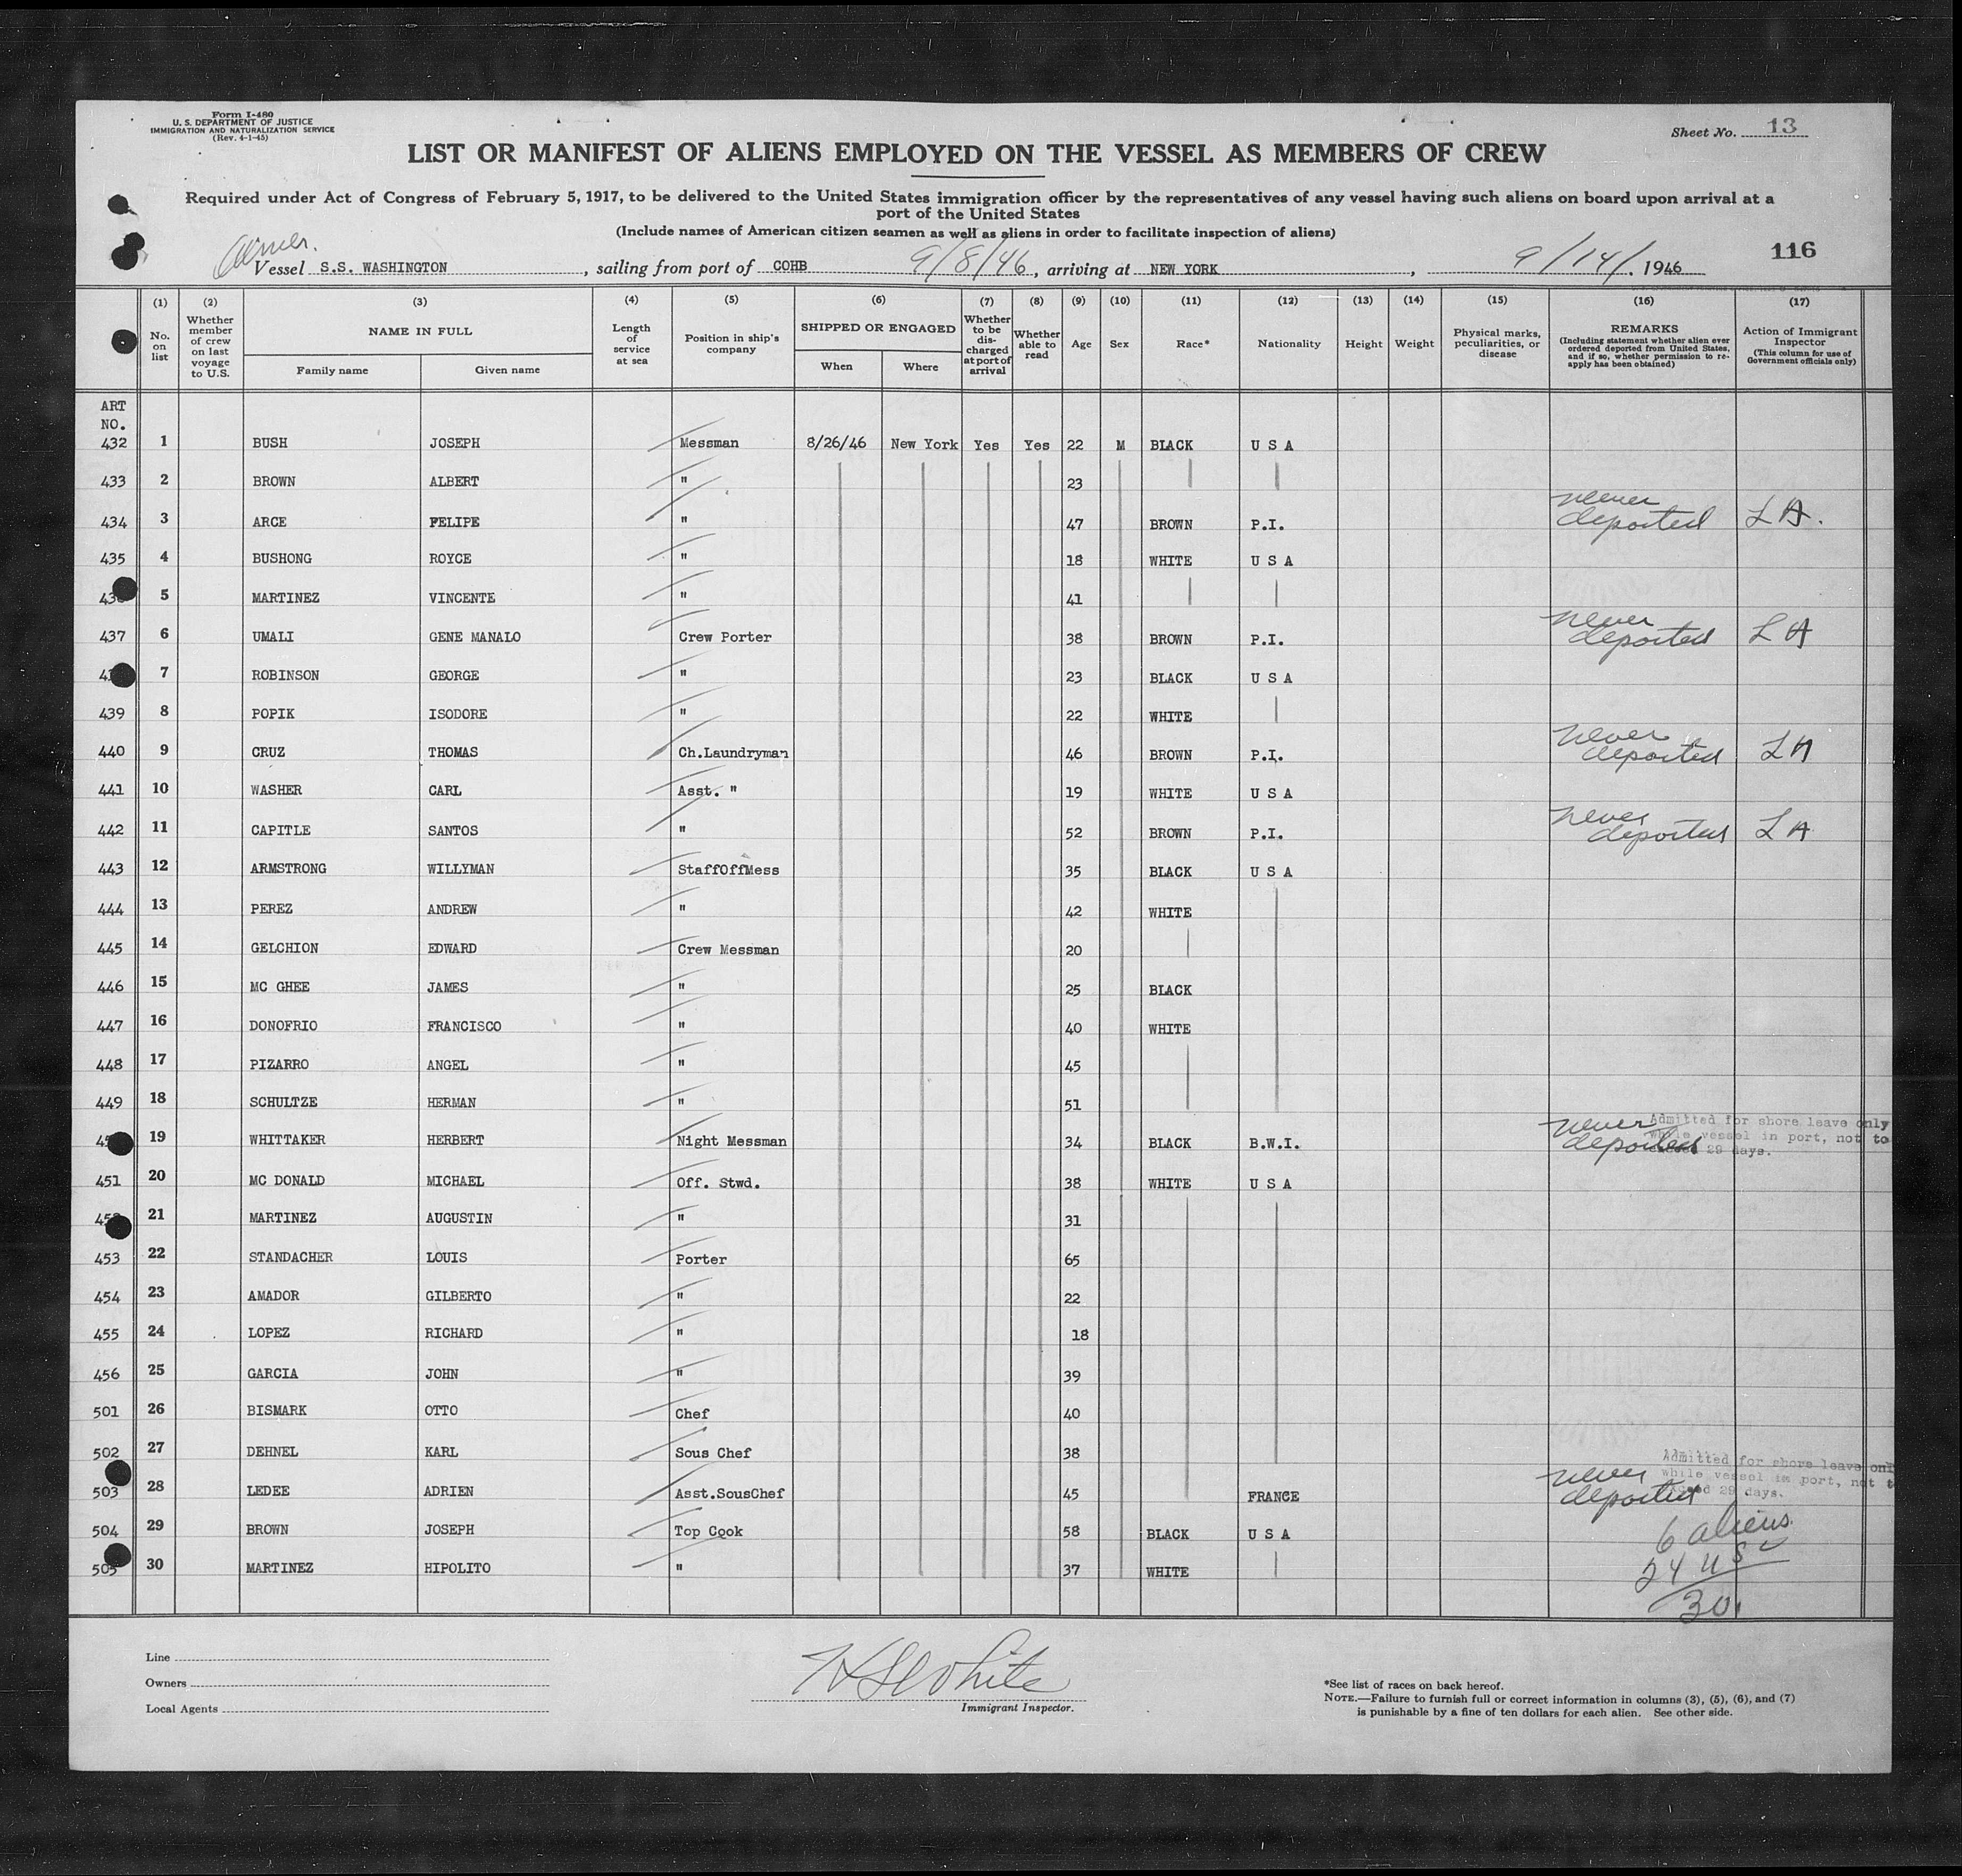 Form I-480
U. S. DEPARTMENT OF JUSTICE
IMMIGRATION AND NATURALIZATION SERVICE
(Rev. 4-1-45)
Sheet No. 13
LIST OR MANIFEST OF ALIENS EMPLOYED ON THE VESSEL AS MEMBERS OF CREW
Required under Act of Congress of February 5, 1917, to be delivered to the United States immigration officer by the representatives of any vessel having such aliens on board upon arrival at a
port of the United States
(Include names of American citizen seamen as well as aliens in order to facilitate inspection of aliens)
116
Vessel S.S. WASHINGTON, sailing from port of COHB 9/8/46, arriving at NEW YORK, 9/14/. 1946
(1) (2) (3) (4) (5) (6) (7) (8) (9) (10) (11) (12) (13) (14) (15) (16) (17)
No. on list
Whether member of crew on last voyage to U.S.
NAME IN FULL
Family name
Given name
Length of service at sea
Position in ship's company
SHIPPED OR ENGAGED
When
Where
Whether to be discharged at port of arrival
Whether able to read
Age
Sex
Race*
Nationality
Height
Weight
Physical marks, peculiarities, or disease
REMARKS
(Including statement whether alien ever ordered deported from United States, and if so, whether permission to re-apply has been obtained)
Action of Immigrant Inspector
(This column for use of Government officials only)
ART
NO.
432 1 BUSH JOSEPH Messman 8/26/46 New York Yes Yes 22 M BLACK U S A
433 2 BROWN ALBERT " 23
434 3 ARCE FELIPE " 47 BROWN P.I. never deported LA.
435 4 BUSHONG ROYCE " 18 WHITE U S A
5 MARTINEZ VINCENTE " 41
437 6 UMALI GENE MANALO Crew Porter 38 BROWN P.I. never deported LA
7 ROBINSON GEORGE " 23 BLACK U S A
439 8 POPIK ISODORE " 22 WHITE
440 9 CRUZ THOMAS Ch.Laundryman 46 BROWN P.I. never deported LA
441 10 WASHER CARL Asst. " 19 WHITE U S A
442 11 CAPITLE SANTOS " 52 BROWN P.I. never deported LA
443 12 ARMSTRONG WILLYMAN StaffOffMess 35 BLACK U S A
444 13 PEREZ ANDREW " 42 WHITE
445 14 GELCHION EDWARD Crew Messman 20
446 15 MC GHEE JAMES " 25 BLACK
447 16 DONOFRIO FRANCISCO " 40 WHITE
448 17 PIZARRO ANGEL " 45
449 18 SCHULTZE HERMAN " 51
19 WHITTAKER HERBERT Night Messman 34 BLACK B.W.I. never deported
Admitted for shore leave only
while vessel in port, not to
exceed 29 days.
451 20 MC DONALD MICHAEL Off. Stwd. 38 WHITE U S A
21 MARTINEZ AUGUSTIN " 31
453 22 STANDACHER LOUIS Porter 65
454 23 AMADOR GILBERTO " 22
455 24 LOPEZ RICHARD " 18
456 25 GARCIA JOHN " 39
501 26 BISMARK OTTO Chef 40
502 27 DEHNEL KARL Sous Chef 38
503 28 LEDEE ADRIEN Asst.SousChef 45 FRANCE never deported
Admitted for shore leave onl
while vessel in port, not t
exceed 29 days.
504 29 BROWN JOSEPH Top Cook 58 BLACK U S A
505 30 MARTINEZ HIPOLITO " 37 WHITE
6 aliens.
24 US
30
Line
Owners
Local Agents
White
Immigrant Inspector.
*See list of races on back hereof.
NOTE.—Failure to furnish full or correct information in columns (3), (5), (6), and (7)
is punishable by a fine of ten dollars for each alien. See other side.